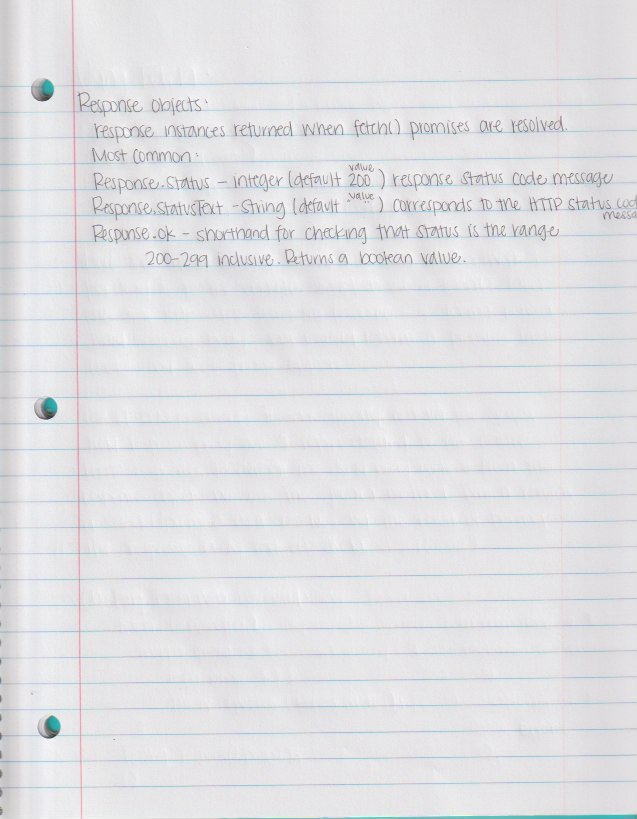 Response objects:
response instances returned when fetch() promises are resolved.
Most common:
Response.status - integer (default value 200) response status code message
Response.statusText - String (default value "") corresponds to the HTTP status cod
messa
Response.ok - shorthand for checking that status is the range
200-299 inclusive. Returns a boolean value.